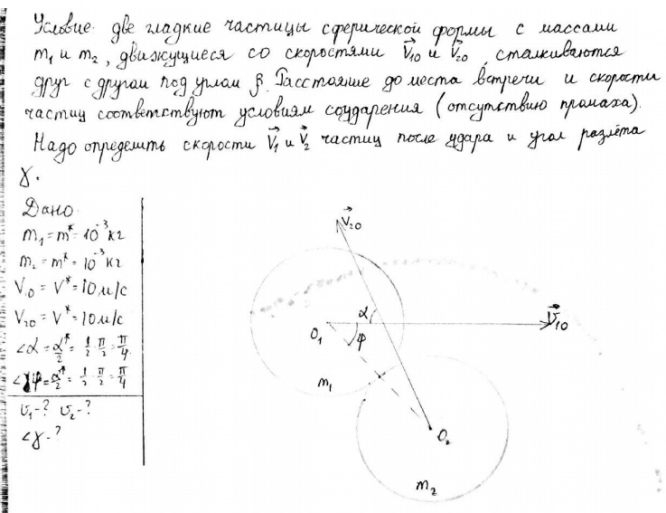 Условие: две гладкие частицы сферической формы с массами
m₁ и m₂, движущиеся со скоростями V⃗₁₀ и V⃗₂₀, сталкиваются
друг с другом под углом β. Расстояние до места встречи и скорости
частиц соответствуют условиям соударения (отсутствию промаха).
Надо определить скорости V⃗₁ и V⃗₂ частиц после удара и угол разлёта
γ.
Дано
m₁ = m* = 10⁻³ кг
m₂ = m* = 10⁻³ кг
V₁₀ = V* = 10 м/с
V₂₀ = V* = 10 м/с
∠α = α*/2 = 1/2 · π/2 = π/4
∠φ = α*/2 = 1/2 · π/2 = π/4
υ₁ - ? υ₂ - ?
∠γ - ?
V⃗₂₀
α
O₁
φ
υ⃗₁₀
m₁
O₂
m₂